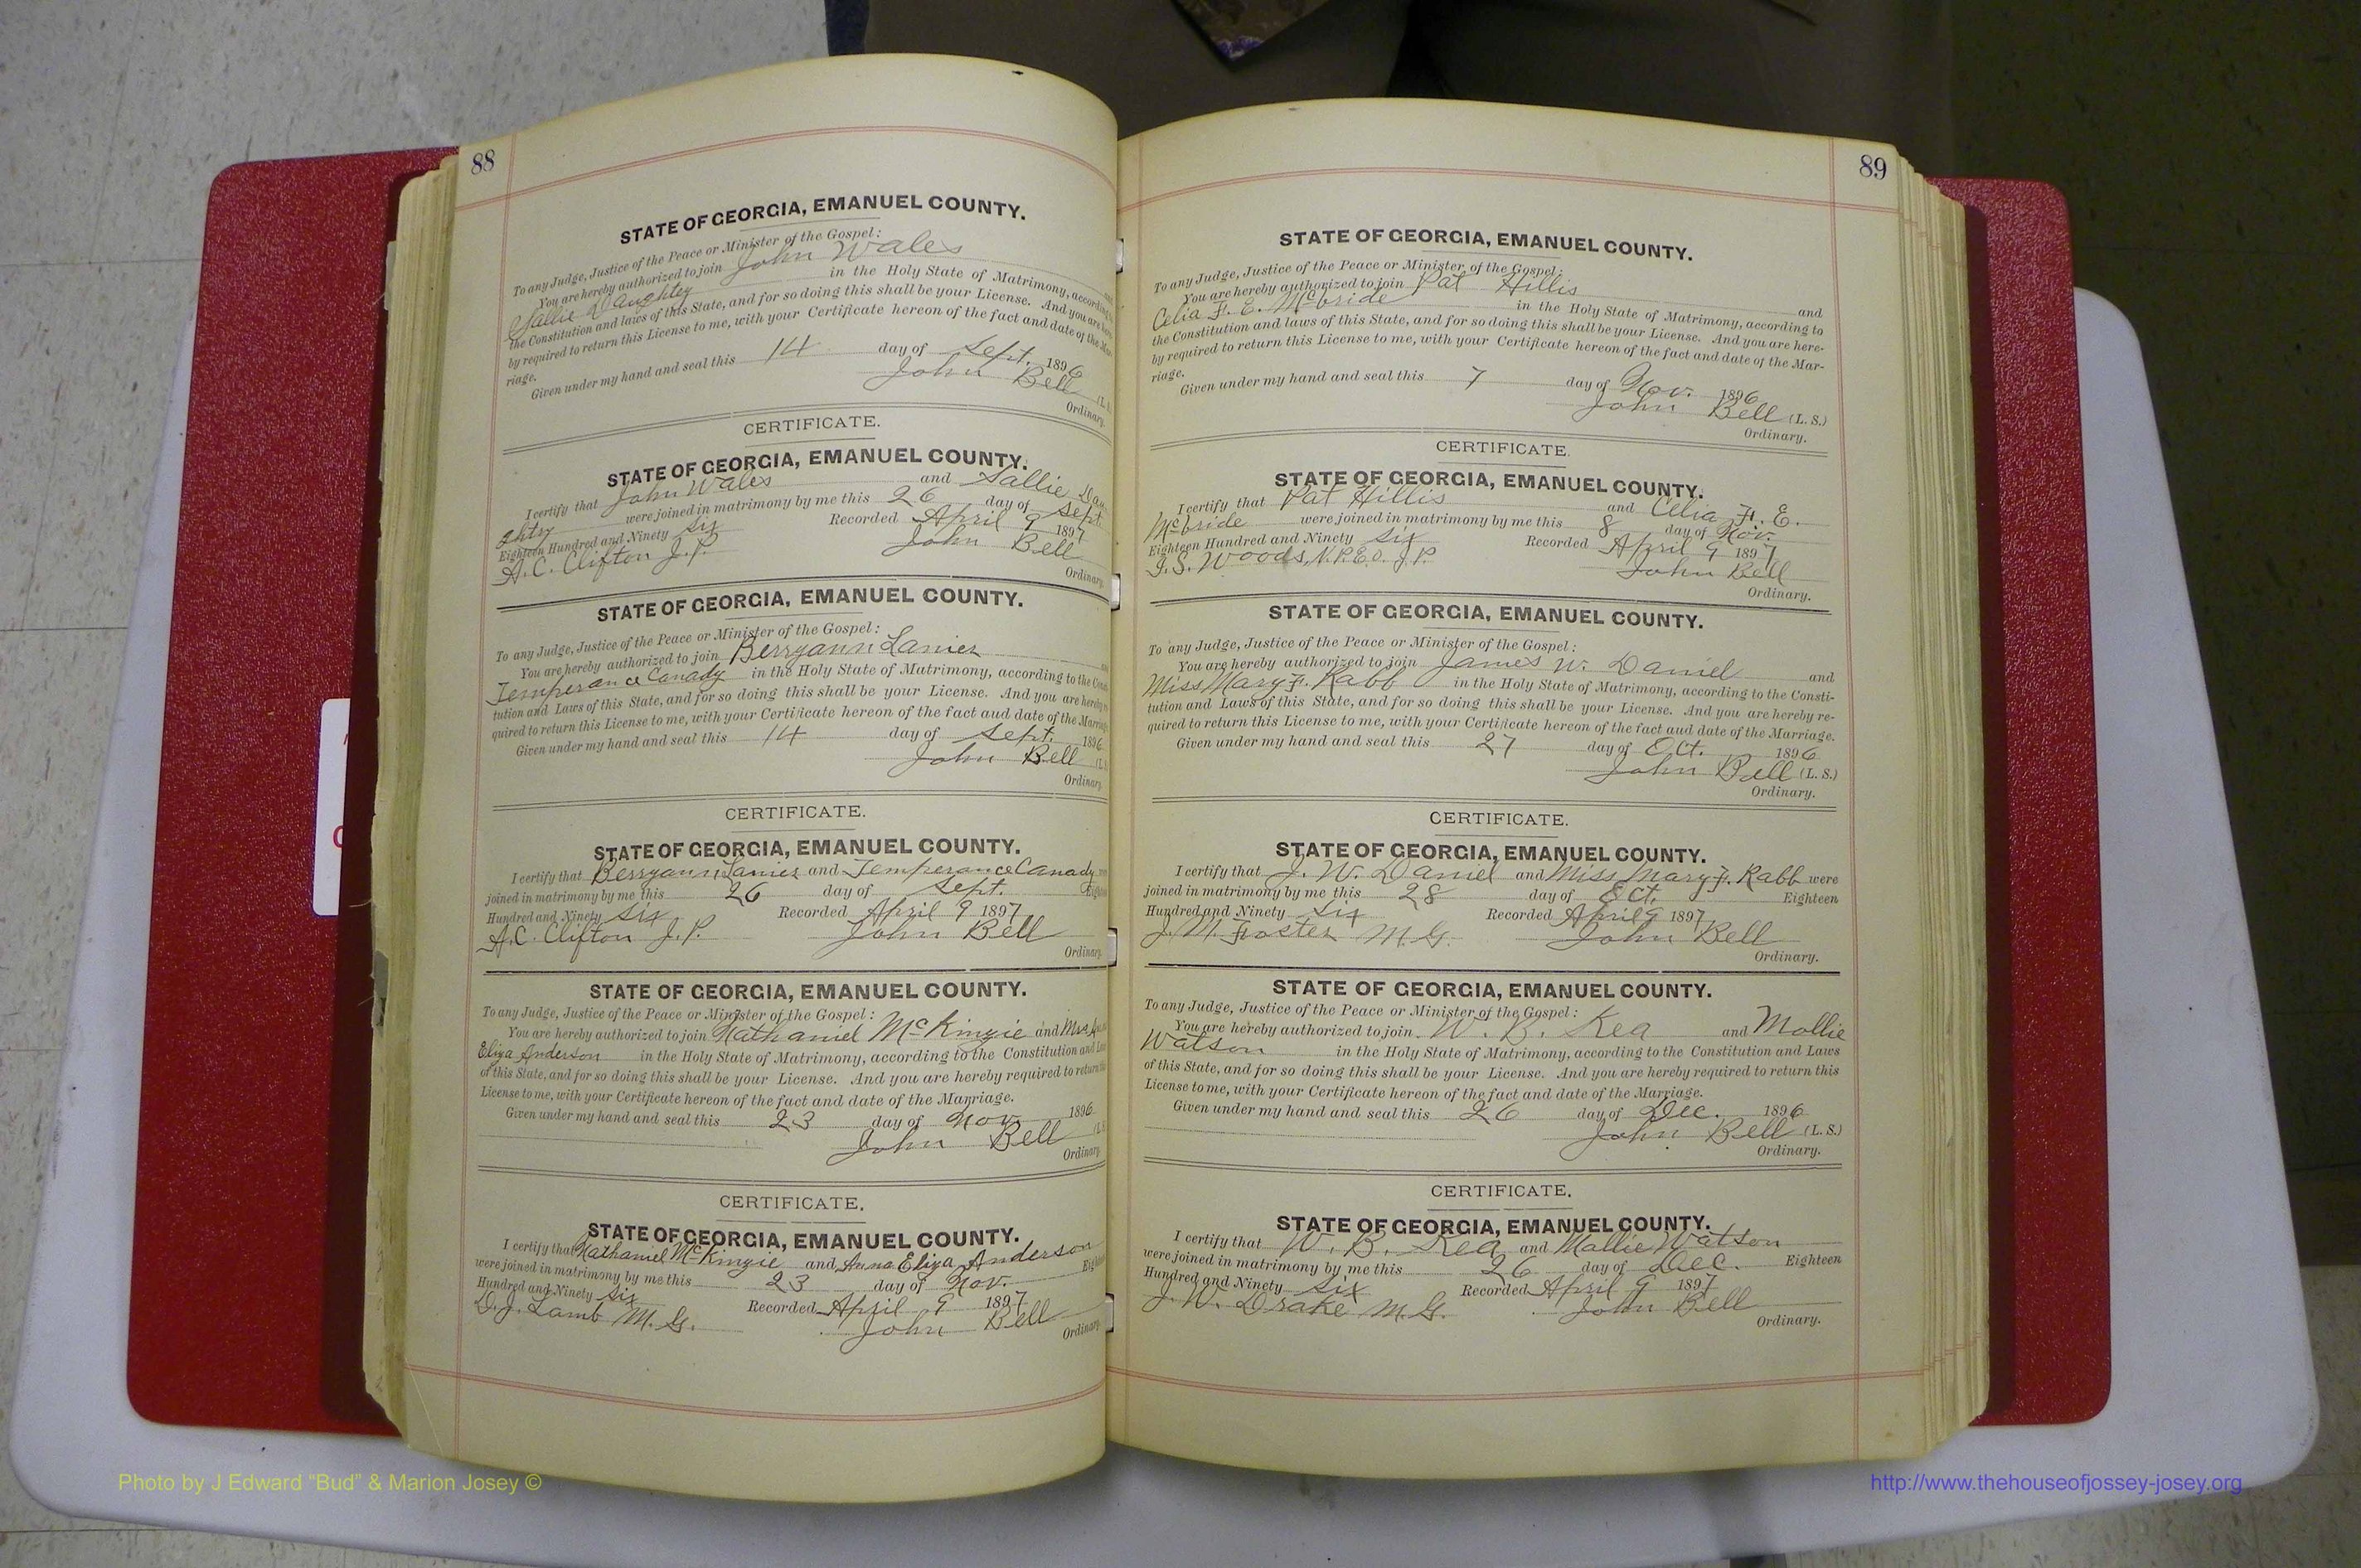 88
STATE OF GEORGIA, EMANUEL COUNTY.
To any Judge, Justice of the Peace or Minister of the Gospel:
You are hereby authorized to join John Wales
Sallie Daughtry in the Holy State of Matrimony, according
the Constitution and laws of this State, and for so doing this shall be your License. And you are here-
by required to return this License to me, with your Certificate hereon of the fact and date of the Mar-
riage.
Given under my hand and seal this 14 day of Sept. 1896
John Bell (L.
Ordinary.
CERTIFICATE.
STATE OF GEORGIA, EMANUEL COUNTY.
I certify that John Wales and Sallie Dau
ghtry were joined in matrimony by me this 26 day of Sept.
Eighteen Hundred and Ninety Six Recorded April 9 1897
A.C. Clifton J.P. John Bell
Ordinary.
STATE OF GEORGIA, EMANUEL COUNTY.
To any Judge, Justice of the Peace or Minister of the Gospel:
You are hereby authorized to join Berryann Lanier
Temperance Canady in the Holy State of Matrimony, according to the Consti-
tution and Laws of this State, and for so doing this shall be your License. And you are hereby
quired to return this License to me, with your Certificate hereon of the fact aud date of the Marriage
Given under my hand and seal this 14 day of Sept. 1896
John Bell (L.
Ordinary.
CERTIFICATE.
STATE OF GEORGIA, EMANUEL COUNTY.
I certify that Berryann Lanier and Temperance Canady
joined in matrimony by me this 26 day of Sept. Eighteen
Hundred and Ninety Six Recorded April 9 1897
A.C. Clifton J.P. John Bell
Ordinary.
STATE OF GEORGIA, EMANUEL COUNTY.
To any Judge, Justice of the Peace or Minister of the Gospel:
You are hereby authorized to join Nathaniel McKinzie and Mrs
Eliza Anderson in the Holy State of Matrimony, according to the Constitution and Laws
of this State, and for so doing this shall be your License. And you are hereby required to return
License to me, with your Certificate hereon of the fact and date of the Marriage.
Given under my hand and seal this 23 day of Nov. 1896
John Bell (L.S.
Ordinary.
CERTIFICATE.
STATE OF GEORGIA, EMANUEL COUNTY.
I certify that Nathaniel McKinzie and Anna Eliza Anderson
were joined in matrimony by me this 23 day of Nov. Eighteen
Hundred and Ninety Six Recorded April 9 1897
D.J. Lamb M.G. John Bell
Ordinary.
89
STATE OF GEORGIA, EMANUEL COUNTY.
To any Judge, Justice of the Peace or Minister of the Gospel:
You are hereby authorized to join Pat Hillis and
Celia F. E. McBride in the Holy State of Matrimony, according to
the Constitution and laws of this State, and for so doing this shall be your License. And you are here-
by required to return this License to me, with your Certificate hereon of the fact and date of the Mar-
riage.
Given under my hand and seal this 7 day of Nov. 1896
John Bell (L. S.)
Ordinary.
CERTIFICATE.
STATE OF GEORGIA, EMANUEL COUNTY.
I certify that Pat Hillis and Celia F. E.
McBride were joined in matrimony by me this 8 day of Nov.
Eighteen Hundred and Ninety Six Recorded April 9 1897
J.S. Woods, N.P.E.O. J.P. John Bell
Ordinary.
STATE OF GEORGIA, EMANUEL COUNTY.
To any Judge, Justice of the Peace or Minister of the Gospel:
You are hereby authorized to join James W. Daniel and
Miss Mary F. Rabb in the Holy State of Matrimony, according to the Consti-
tution and Laws of this State, and for so doing this shall be your License. And you are hereby re-
quired to return this License to me, with your Certificate hereon of the fact aud date of the Marriage.
Given under my hand and seal this 27 day of Oct. 1896
John Bell (L. S.)
Ordinary.
CERTIFICATE.
STATE OF GEORGIA, EMANUEL COUNTY.
I certify that J. W. Daniel and Miss Mary F. Rabb were
joined in matrimony by me this 28 day of Oct. Eighteen
Hundred and Ninety Six Recorded April 9 1897
J. M. Foster M.G. John Bell
Ordinary.
STATE OF GEORGIA, EMANUEL COUNTY.
To any Judge, Justice of the Peace or Minister of the Gospel:
You are hereby authorized to join W. B. Kea and Mollie
Watson in the Holy State of Matrimony, according to the Constitution and Laws
of this State, and for so doing this shall be your License. And you are hereby required to return this
License to me, with your Certificate hereon of the fact and date of the Marriage.
Given under my hand and seal this 26 day of Dec. 1896
John Bell (L. S.)
Ordinary.
CERTIFICATE.
STATE OF GEORGIA, EMANUEL COUNTY.
I certify that W. B. Kea and Mollie Watson
were joined in matrimony by me this 26 day of Dec. Eighteen
Hundred and Ninety Six Recorded April 9 1897
J. W. Drake M.G. John Bell
Ordinary.
Photo by J Edward "Bud" & Marion Josey ©
http://www.thehouseofjossey-josey.org